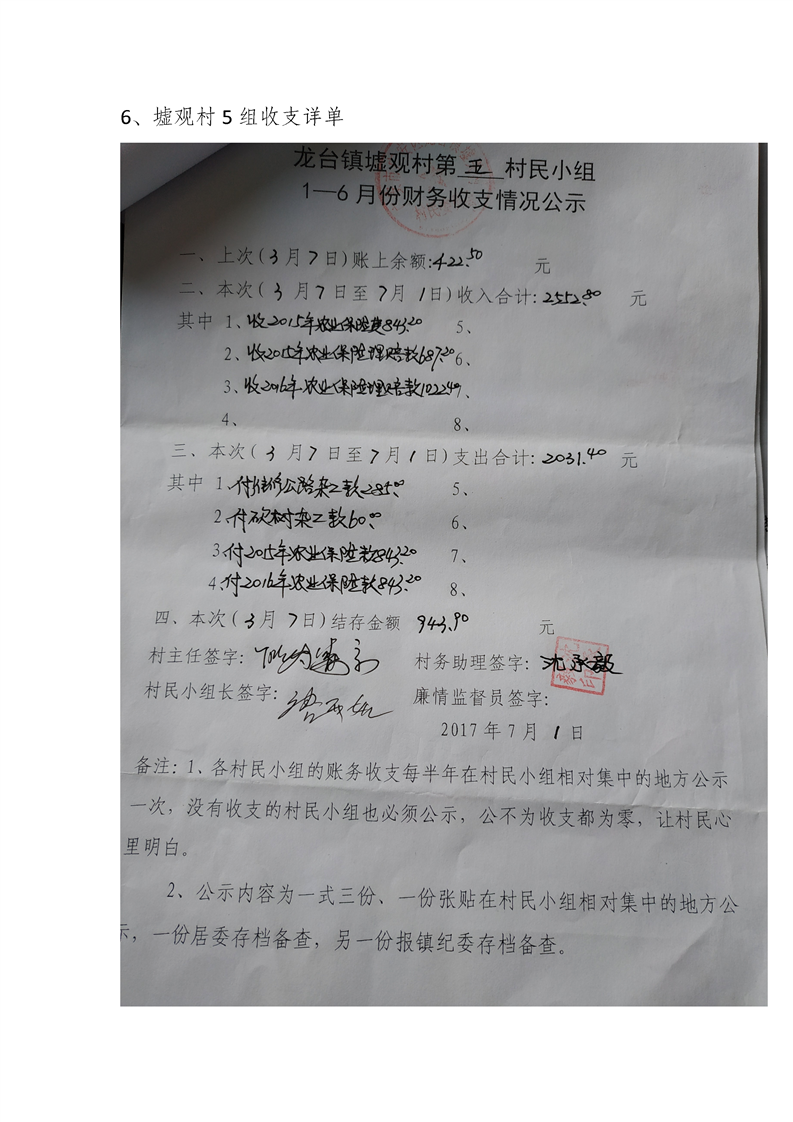 6、墟观村 5 组收支详单
龙台镇墟观村第 五 村民小组
1—6 月份财务收支情况公示
一、上次(3月7日)账上余额:422.50 元
二、本次(3月7日至7月1日)收入合计:2552.80 元
其中 1、收2015年农业保险费843.20 5、
2、收2015年农业保险理赔款687.20 6、
3、收2016年农业保险理赔款1022.40 7、
4、 8、
三、本次(3月7日至7月1日)支出合计:2031.40 元
其中 1、付维修公路杂工款285.00 5、
2、付砍树杂工款60.00 6、
3、付2015年农业保险款843.20 7、
4、付2016年农业保险款843.20 8、
四、本次(3月7日)结存金额 943.90 元
村主任签字: 村务助理签字:沈承毅
村民小组长签字: 廉情监督员签字:
2017年7月1日
备注:1、各村民小组的账务收支每半年在村民小组相对集中的地方公示
一次,没有收支的村民小组也必须公示,公不为收支都为零,让村民心
里明白。
2、公示内容为一式三份、一份张贴在村民小组相对集中的地方公
示,一份居委存档备查,另一份报镇纪委存档备查。